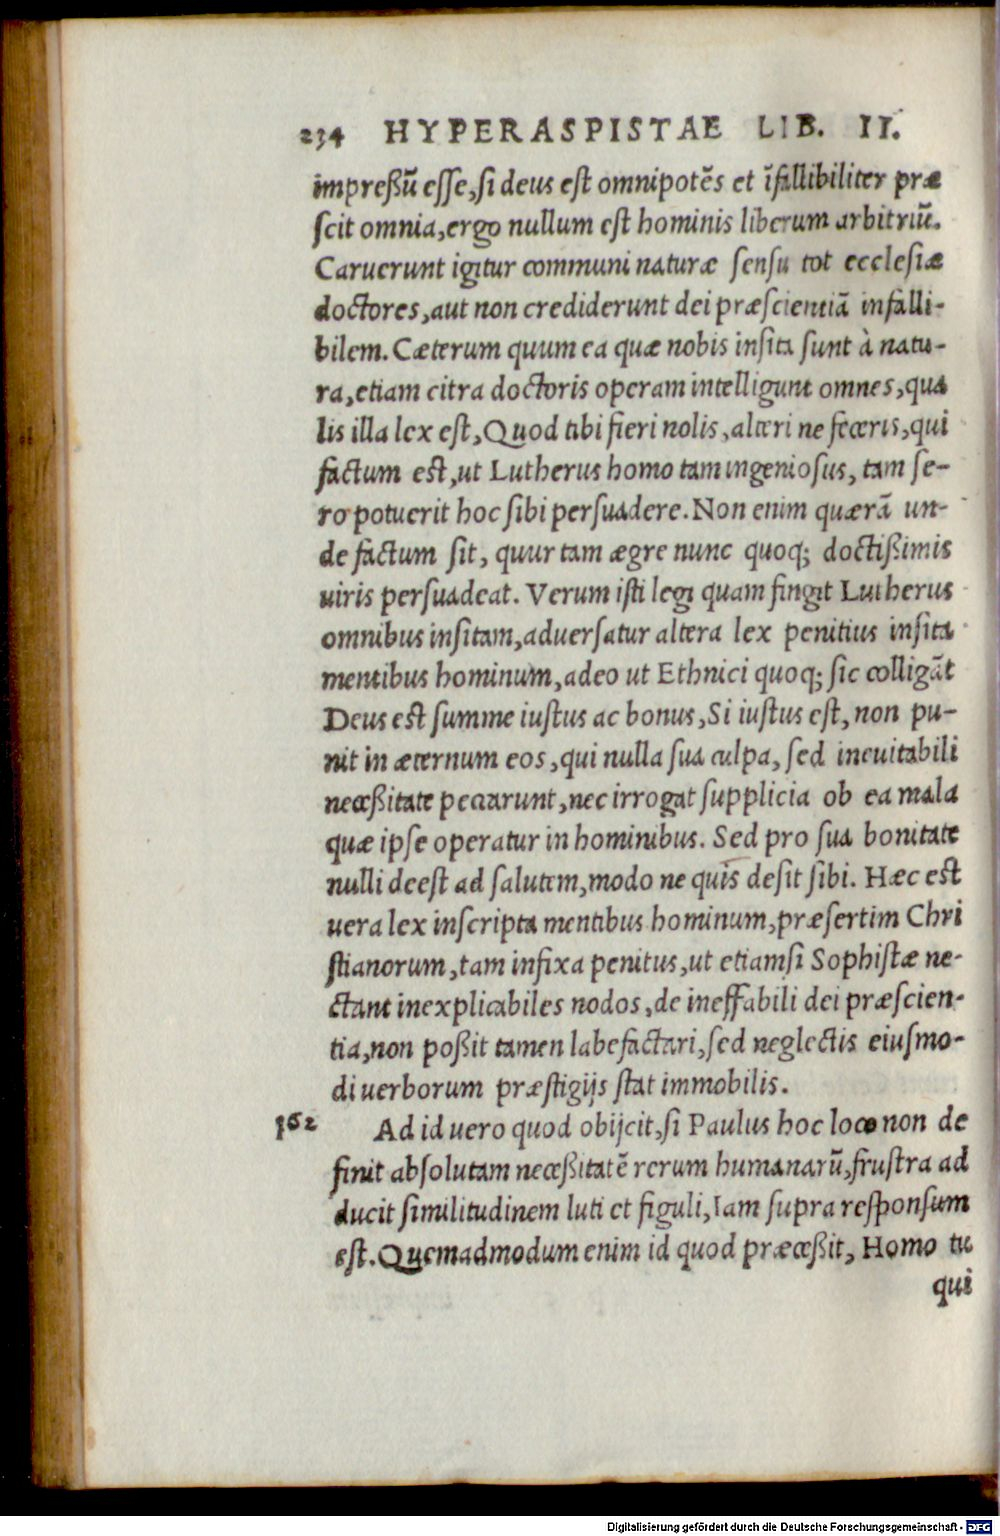 234 HYPERASPISTAE LIB. II.
impreßũ esse, si deus est omnipotẽs et ĩfallibiliter præ
scit omnia, ergo nullum est hominis liberum arbitriũ.
Caruerunt igitur communi naturæ sensu tot ecclesiæ
doctores, aut non crediderunt dei præscientiã infalli-
bilem. Cæterum quum ea quæ nobis insita sunt à natu-
ra, etiam citra doctoris operam intelligunt omnes, qua
lis illa lex est, Quod tibi fieri nolis, alteri ne feceris, qui
factum est, ut Lutherus homo tam ingeniosus, tam se-
ro potuerit hoc sibi persuadere. Non enim quærã un-
de factum sit, quur tam ægre nunc quoq; doctißimis
uiris persuadeat. Verum isti legi quam fingit Lutherus
omnibus insitam, aduersatur altera lex penitius insita
mentibus hominum, adeo ut Ethnici quoq; sic colligãt
Deus est summe iustus ac bonus, Si iustus est, non pu-
nit in æternum eos, qui nulla sua culpa, sed ineuitabili
neceßitate peccarunt, nec irrogat supplicia ob ea mala
quæ ipse operatur in hominibus. Sed pro sua bonitate
nulli deest ad salutem, modo ne quis desit sibi. Hæc est
uera lex inscripta mentibus hominum, præsertim Chri
stianorum, tam infixa penitus, ut etiamsi Sophistæ ne-
ctant inexplicabiles nodos, de ineffabili dei præscien-
tia, non poßit tamen labefactari, sed neglectis eiusmo-
di uerborum præstigijs stat immobilis.
362 Ad id uero quod obijcit, si Paulus hoc loco non de
finit absolutam neceßitatẽ rerum humanarũ, frustra ad
ducit similitudinem luti et figuli, Iam supra responsum
est. Quemadmodum enim id quod præceßit, Homo tu
qui
Digitalisierung gefördert durch die Deutsche Forschungsgemeinschaft - DFG